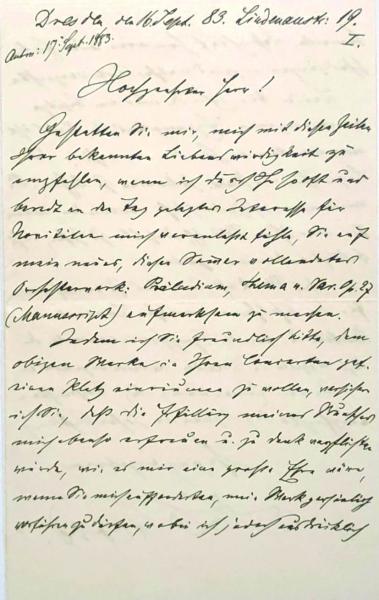 Dresden, den 16. Sept. 83. Lindenaustr: 19.
I.
Antw: 17. Sept. 1883.
Hochgeehrter Herr!
Gestatten Sie mir, mich mit diesen Zeilen
Ihrer bekannten Liebenswürdigkeit zu
empfehlen, wenn ich durch Ihr so oft und
beredt an den Tag gelegtes Interesse für
Novitäten mich veranlaßt fühle, Sie auf
mein neues, diesen Sommer vollendetes
Orchesterwerk: Präludium, Thema u. Var. Op. 27
(Manuscript) aufmerksam zu machen.
Indem ich Sie freundlich bitte, dem
obigen Werke in Ihren Concerten gef.
einen Platz einräumen zu wollen, versichere
ich Sie, daß die Erfüllung meines Wunsches
mich ebenso erfreuen u. zu Dank verpflichten
würde, wie es mir eine große Ehre wäre,
wenn Sie mich aufforderten, mein Werk persönlich
vorführen zu dürfen, wobei ich jedoch ausdrücklich